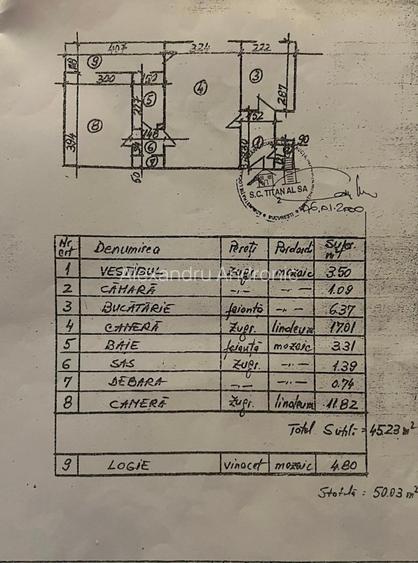 407 224 222
168 9
300 150
3
207 5 4 287
152
8 394 148
6 1 90
7
60
S.C. TITAN AL SA
2
06.01.2000
Nr crt Denumirea Pereți Pardos. Supr. m²
Alexandru Andronic
1 VESTIBUL zugr. mozaic 3.50
2 CĂMARĂ -..- -..- 1.09
3 BUCĂTĂRIE faianță -..- 6.37
4 CAMERĂ zugr. linoleum 17.01
5 BAIE faianță mozaic 3.31
6 SAS zugr. -..- 1.39
7 DEBARA -..- -..- 0.74
8 CAMERĂ zugr. linoleum 11.82
Total Sutilă = 45.23 m²
9 LOGIE vinacet mozaic 4.80
Stotală : 50.03 m²